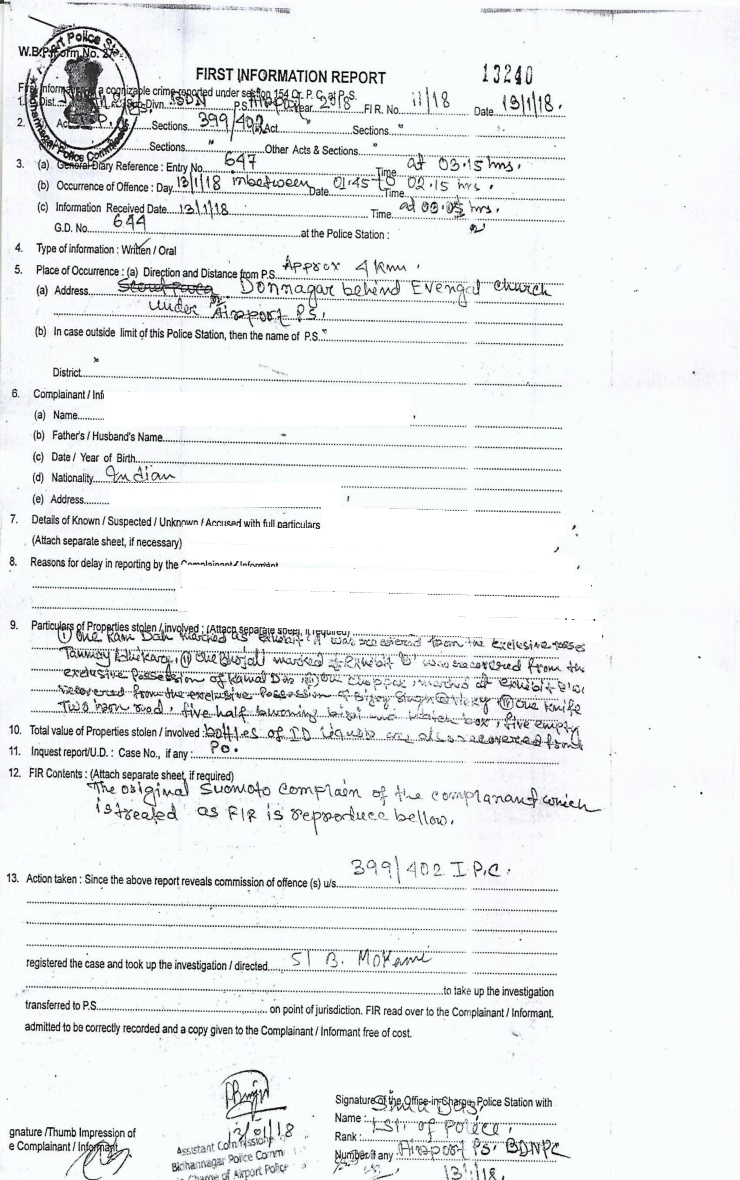 W.B.P. Form No. 27
FIRST INFORMATION REPORT
13240
First Information of a cognizable crime reported under section 154 Cr. P. C. at P. S.
1. Dist. Sub-Divn. BDN P.S. Airport Year 2018 F I R. No. 11/18 Date 13/1/18.
2. Act Sections 399/402 Act Sections "
Sections " Other Acts & Sections
3. (a) General Diary Reference : Entry No. 647 Time at 03.15 hrs.
(b) Occurrence of Offence : Day 13/1/18 inbetween Date 01.45 to Time 02.15 hrs.
(c) Information Received Date 13/1/18 Time at 03.05 hrs.
G.D. No. 644 at the Police Station :
4. Type of information : Written / Oral
5. Place of Occurrence : (a) Direction and Distance from P.S. Approx 4 km.
(a) Address Donnagar behind Evengal church
under Airport PS.
(b) In case outside limit of this Police Station, then the name of P.S. "
"
District
6. Complainant / Inf
(a) Name
(b) Father's / Husband's Name -
(c) Date / Year of Birth
(d) Nationality Indian
(e) Address
7. Details of Known / Suspected / Unknown / Accused with full particulars
(Attach separate sheet, if necessary)
8. Reasons for delay in reporting by the Complainant / Informant
9. Particulars of Properties stolen / involved : (Attach separate sheet, if required)
(i) One Kam Dah marked as exhibit it was recovered from the exclusive
Tanmoy Adhikary, (ii) One Bhojali marked at Exhibit 'B' was recovered from the
exclusive Possession of Kamal Das (iii) One choppar, marked at exhibit
recovered from the exclusive Possession of Bijoy Singh @ Vicky (iv) One knife
Two iron rod, five half burning bizi and match box, five empty
10. Total value of Properties stolen / involved : bottles of ID liquor are also recovered from
11. Inquest report/U.D. : Case No., if any : Po.
12. FIR Contents : (Attach separate sheet, if required)
The original Suomoto Complain of the complanant which
is treated as FIR is reproduce bellow.
13. Action taken : Since the above report reveals commission of offence (s) u/s. 399/402 I.P.C.
registered the case and took up the investigation / directed SI B. Mokami
to take up the investigation
transferred to P.S. on point of jurisdiction. FIR read over to the Complainant / Informant.
admitted to be correctly recorded and a copy given to the Complainant / Informant free of cost.
13/01/18
Assistant Commissioner
Bidhannagar Police Comm
Charge of Airport Police
gnature /Thumb Impression of
e Complainant / Informant
Signature of the Office-in-Charge, Police Station with
Name :
Rank : of Police.
Number if any Airport PS. BDNPC
13/1/18.